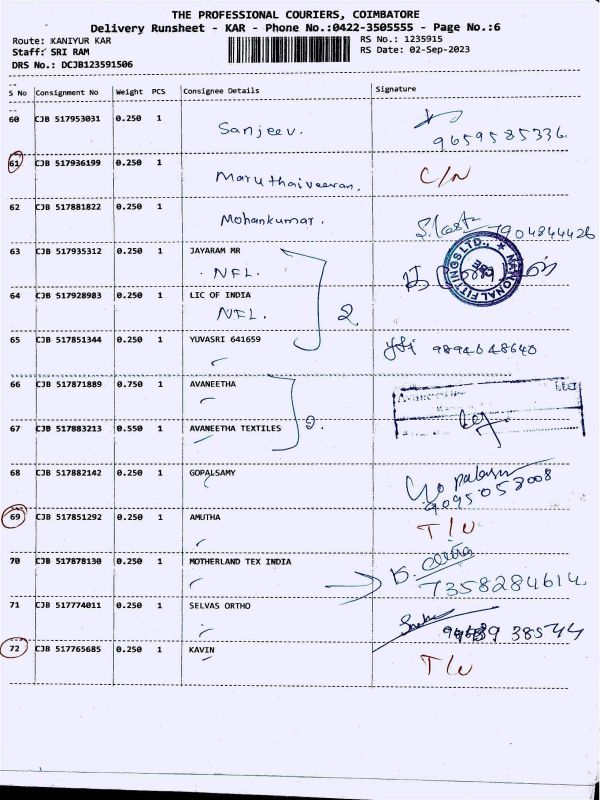 THE PROFESSIONAL COURIERS, COIMBATORE
Delivery Runsheet - KAR - Phone No.:0422-3505555 - Page No.:6
Route: KANIYUR KAR
RS No.: 1235915
Staff: SRI RAM
RS Date: 02-Sep-2023
DRS No.: DCJB123591506
S No Consignment No Weight PCS Consignee Details Signature
60 CJB 517953031 0.250 1 Sanjeev.
9659585336.
61 CJB 517936199 0.250 1 Maruthaiveeran. C/N
62 CJB 517881822 0.250 1 Mohankumar.
7904844426
63 CJB 517935312 0.250 1 JAYARAM MR
NFL.
NATIONAL FITTINGS LTD.,
64 CJB 517928983 0.250 1 LIC OF INDIA
NFL. 2
65 CJB 517851344 0.250 1 YUVASRI 641659
9894648640
66 CJB 517871889 0.750 1 AVANEETHA
67 CJB 517883213 0.550 1 AVANEETHA TEXTILES
68 CJB 517882142 0.250 1 GOPALSAMY
9095053008
69 CJB 517851292 0.250 1 AMUTHA T/N
70 CJB 517878130 0.250 1 MOTHERLAND TEX INDIA
7358284614
71 CJB 517774011 0.250 1 SELVAS ORTHO
38544
72 CJB 517765685 0.250 1 KAVIN T/N